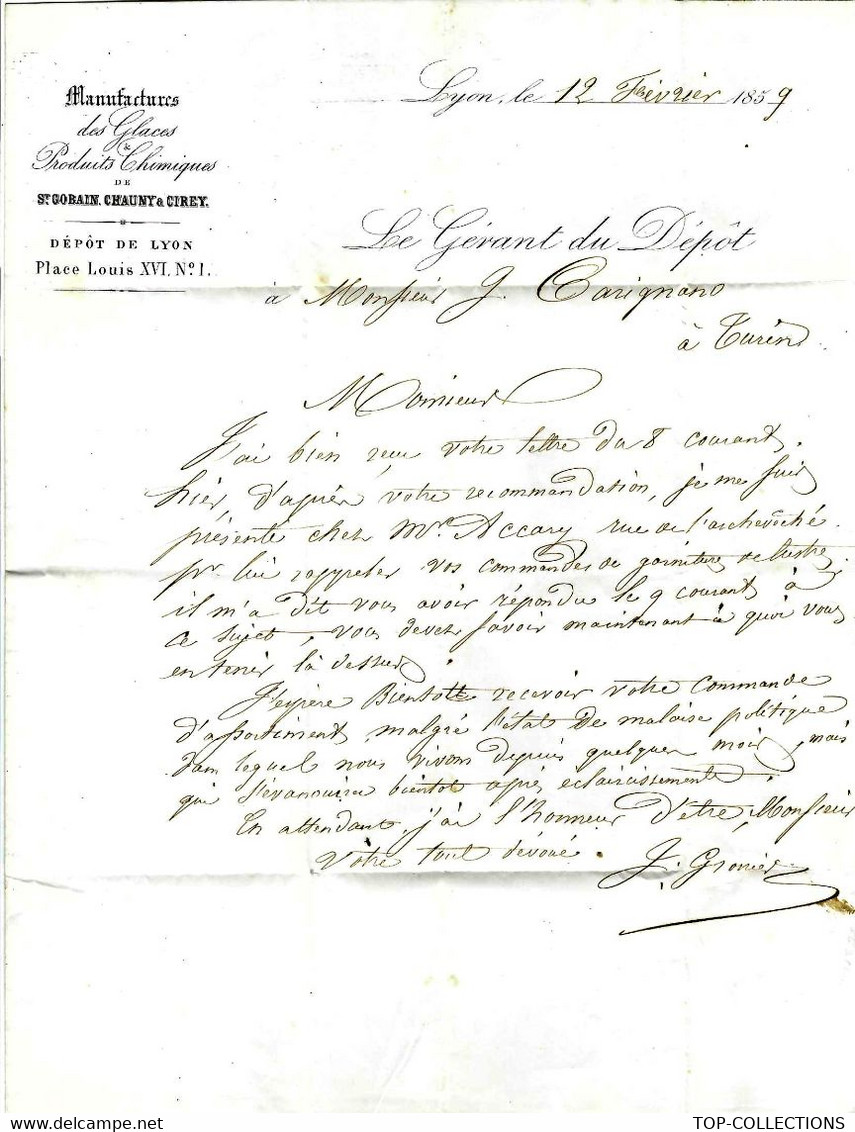 Manufactures
des Glaces
&
Produits Chimiques
DE
ST GOBAIN, CHAUNY & CIREY.
DÉPÔT DE LYON
Place Louis XVI, No 1.
Lyon, le 12 Février 1859
Le Gérant du Dépôt
à Monsieur J. Carignano
à Turin
Monsieur
J'ai bien reçu votre lettre du 8 courant.
hier, d'après votre recommandation, je me suis
présenté chez Mr Accary rue de l'archevêché
pr lui rappeler vos commandes de garniture de lustre,
il m'a dit vous avoir répondu le 9 courant à
ce sujet, vous devez savoir maintenant à quoi vous
en tenir là dessus.
J'espère Bientott recevoir votre commande
d'assortiment malgré l'état de malaise politique
dans lequel nous vivons depuis quelques mois, mais
qui s'évanouira bientot après eclaircissement.
En attendant, j'ai l'honneur d'être, Monsieur
Votre tout dévoué.
J. Gronier
TOP-COLLECTIONS